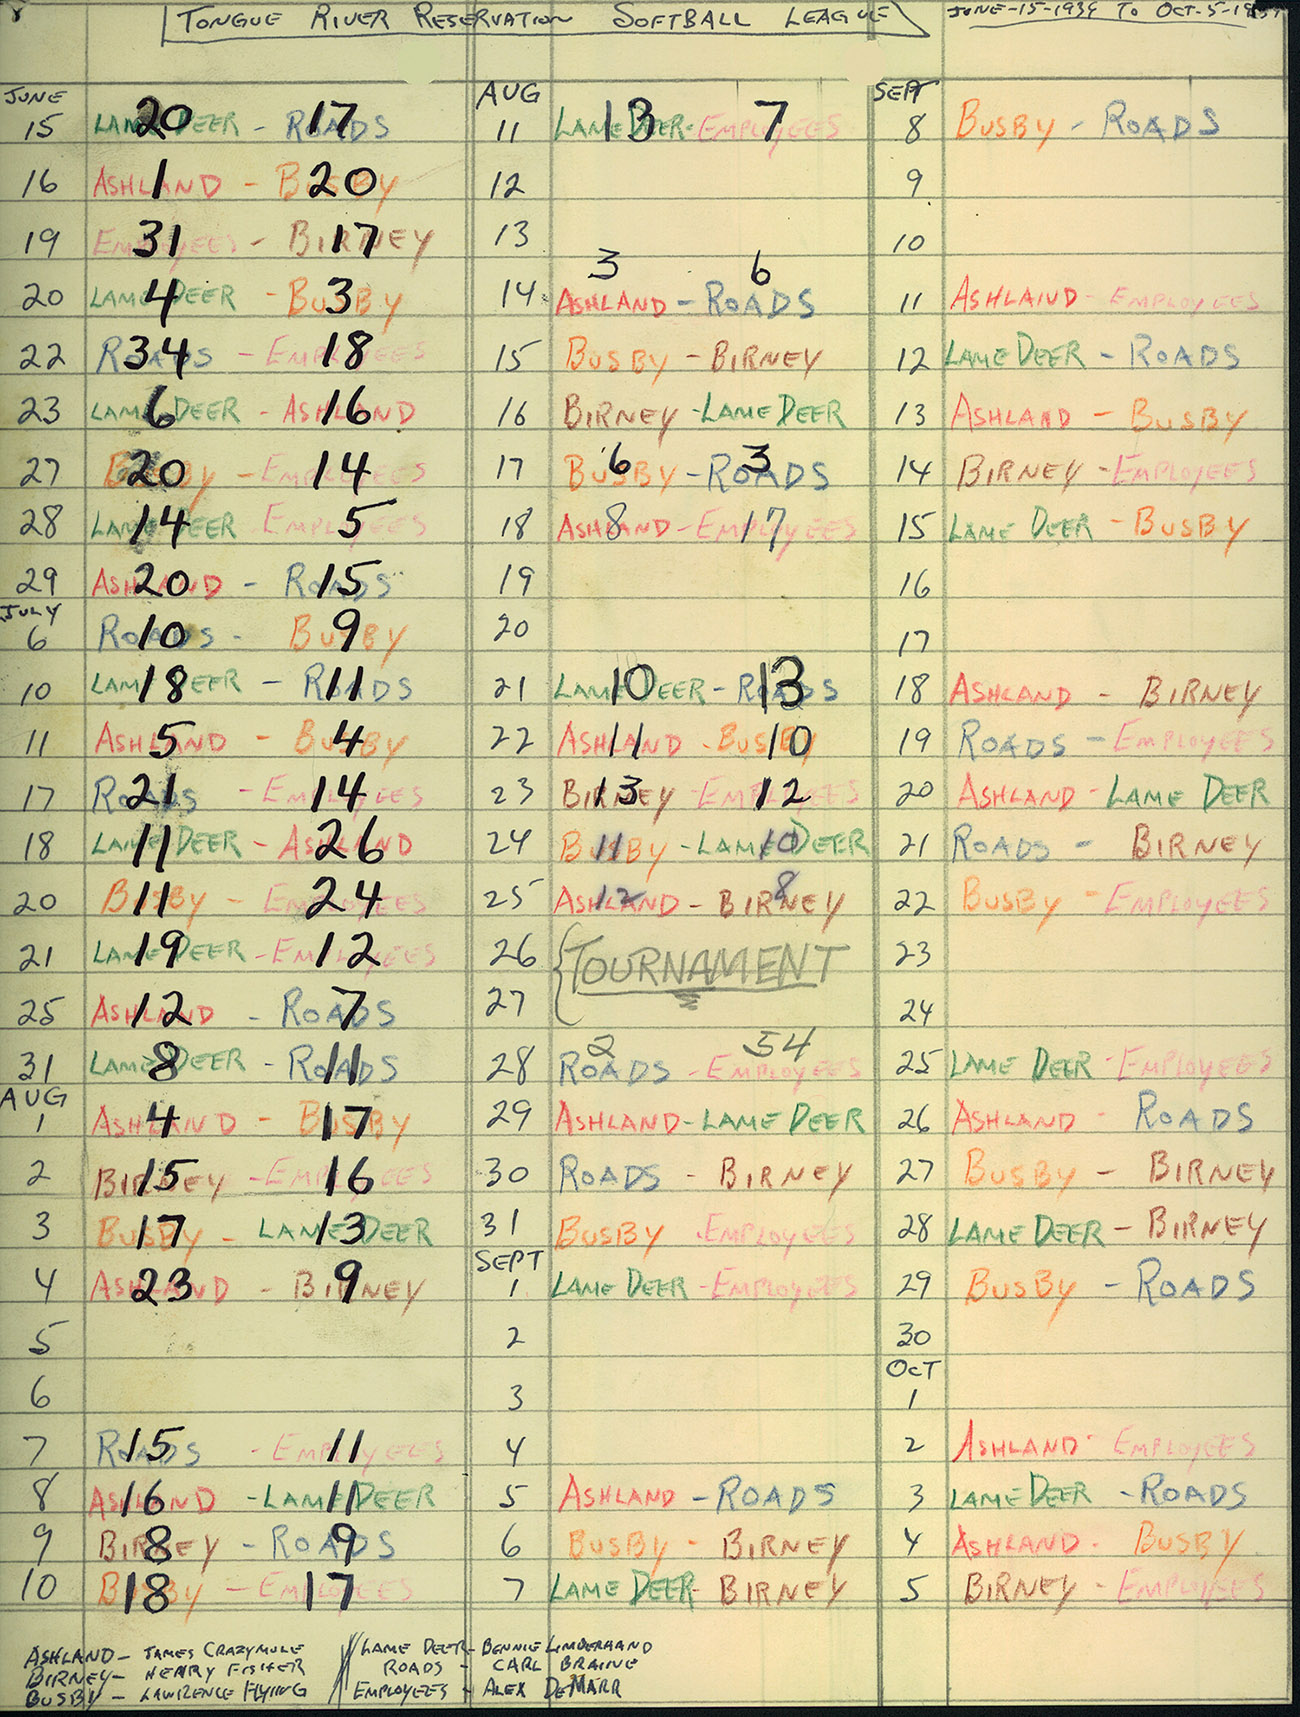 TONGUE RIVER RESERVATION SOFTBALL LEAGUE JUNE-15-1939 TO OCT-5-1939
JUNE
15 LAME DEER - ROADS 20 17
16 ASHLAND - BUSBY 1 20
19 EMPLOYEES - BIRNEY 31 17
20 LAME DEER - BUSBY 4 3
22 ROADS - EMPLOYEES 34 18
23 LAME DEER - ASHLAND 6 16
27 BUSBY - EMPLOYEES 20 14
28 LAME DEER EMPLOYEES 14 5
29 ASHLAND - ROADS 20 15
JULY
6 ROADS - BUSBY 10 9
10 LAME DEER - ROADS 18 11
11 ASHLAND - BUSBY 5 4
17 ROADS - EMPLOYEES 21 14
18 LAME DEER - ASHLAND 11 26
20 BUSBY - EMPLOYEES 11 24
21 LAME DEER - EMPLOYEES 19 12
25 ASHLAND - ROADS 12 7
31 LAME DEER - ROADS 8 11
AUG
1 ASHLAND - BUSBY 4 17
2 BIRNEY - EMPLOYEES 15 16
3 BUSBY - LAME DEER 17 13
4 ASHLAND - BIRNEY 23 9
5
6
7 ROADS - EMPLOYEES 15 11
8 ASHLAND - LAME DEER 16 11
9 BIRNEY - ROADS 8 9
10 BUSBY - EMPLOYEES 18 17
AUG
11 LAME DEER - EMPLOYEES 13 7
12
13
14 ASHLAND - ROADS 3 6
15 BUSBY - BIRNEY
16 BIRNEY - LAME DEER
17 BUSBY - ROADS 6 3
18 ASHLAND - EMPLOYEES 8 17
19
20
21 LAME DEER - ROADS 10 13
22 ASHLAND - BUSBY 11 10
23 BIRNEY EMPLOYEES 13 12
24 BUSBY - LAME DEER 11 10
25 ASHLAND - BIRNEY 12 8
26 TOURNAMENT
27
28 ROADS - EMPLOYEES 2 54
29 ASHLAND - LAME DEER
30 ROADS - BIRNEY
31 BUSBY - EMPLOYEES
SEPT
1 LAME DEER - EMPLOYEES
2
3
4
5 ASHLAND - ROADS
6 BUSBY - BIRNEY
7 LAME DEER - BIRNEY
SEPT
8 BUSBY - ROADS
9
10
11 ASHLAND - EMPLOYEES
12 LAME DEER - ROADS
13 ASHLAND - BUSBY
14 BIRNEY - EMPLOYEES
15 LAME DEER - BUSBY
16
17
18 ASHLAND - BIRNEY
19 ROADS - EMPLOYEES
20 ASHLAND - LAME DEER
21 ROADS - BIRNEY
22 BUSBY - EMPLOYEES
23
24
25 LAME DEER - EMPLOYEES
26 ASHLAND - ROADS
27 BUSBY - BIRNEY
28 LAME DEER - BIRNEY
29 BUSBY - ROADS
30
OCT
1
2 ASHLAND - EMPLOYEES
3 LAME DEER - ROADS
4 ASHLAND - BUSBY
5 BIRNEY - EMPLOYEES
ASHLAND - JAMES CRAZYMULE
BIRNEY - HENRY FISHER
BUSBY - LAWRENCE FLYING
LAME DEER - BENNIE LIMBERHAND
ROADS - CARL BRAINE
EMPLOYEES - ALEX DEMARR